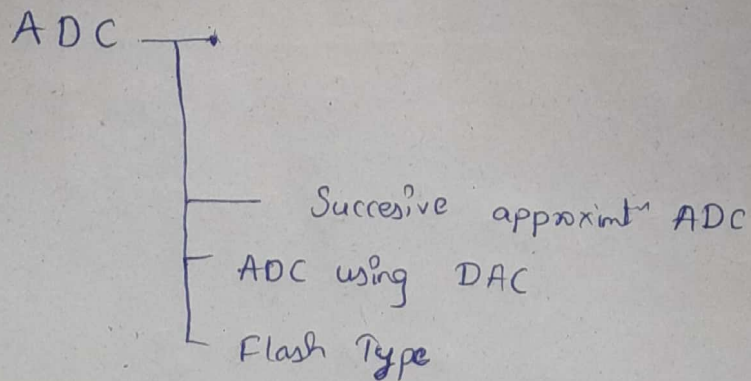 ADC
Succesive approximtⁿ ADC
ADC using DAC
Flash Type